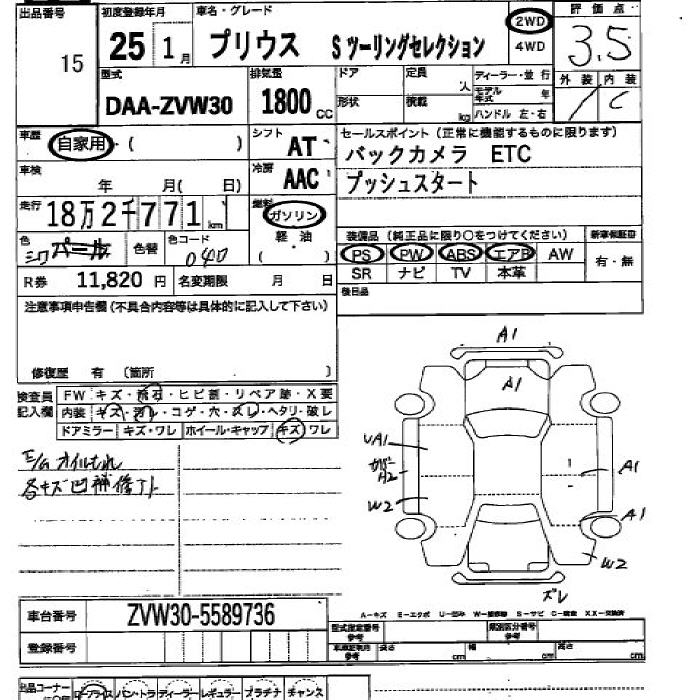 出品番号 初度登録年月 車名・グレード 評価点
15 25 1月 プリウス Sツーリングセレクション 2WD 4WD 3.5
外装 内装
型式 排気量 ドア 定員 人 ディーラー・並行
DAA-ZVW30 1800 CC 形状 積載 kg モデル年式 年 C
ハンドル 左・右
車歴 自家用・( ) シフト AT セールスポイント(正常に機能するものに限ります)
バックカメラ ETC
車検 年 月( 日) 冷房 AAC プッシュスタート
走行 18万2千771km 燃料 ガソリン
軽・油
( )
色 シロパール 色替 色コード 040
装備品(純正品に限り○をつけてください) 新車保証書
PS PW ABS エアB AW 有・無
SR ナビ TV 本革
R券 11,820円 名変期限 月 日 後日品
注意事項申告欄(不具合内容等は具体的に記入して下さい)
修復歴 有 (箇所 )
検査員記入欄 FW キズ・飛石・ヒビ割・リペア跡・X要
内装 キズ・汚レ・コゲ・穴・スレ・ヘタリ・破レ
ドアミラー キズ・ワレ ホイール・キャップ キズ ワレ
E/G オイルもれ
各キズ凹補修ア
A1
A1
UA1
A2
W2
A1
A1
W2
ズレ
A-キズ E-エクボ U-凹み W-補修跡 S-サビ C-腐食 XX-交換済
車台番号 ZVW30-5589736
型式指定番号 参考 類別区分番号 参考
登録番号 長さ cm 幅 cm 高さ cm
出品コーナー バン・トラ ディーラー レギュラー プラチナ チャンス